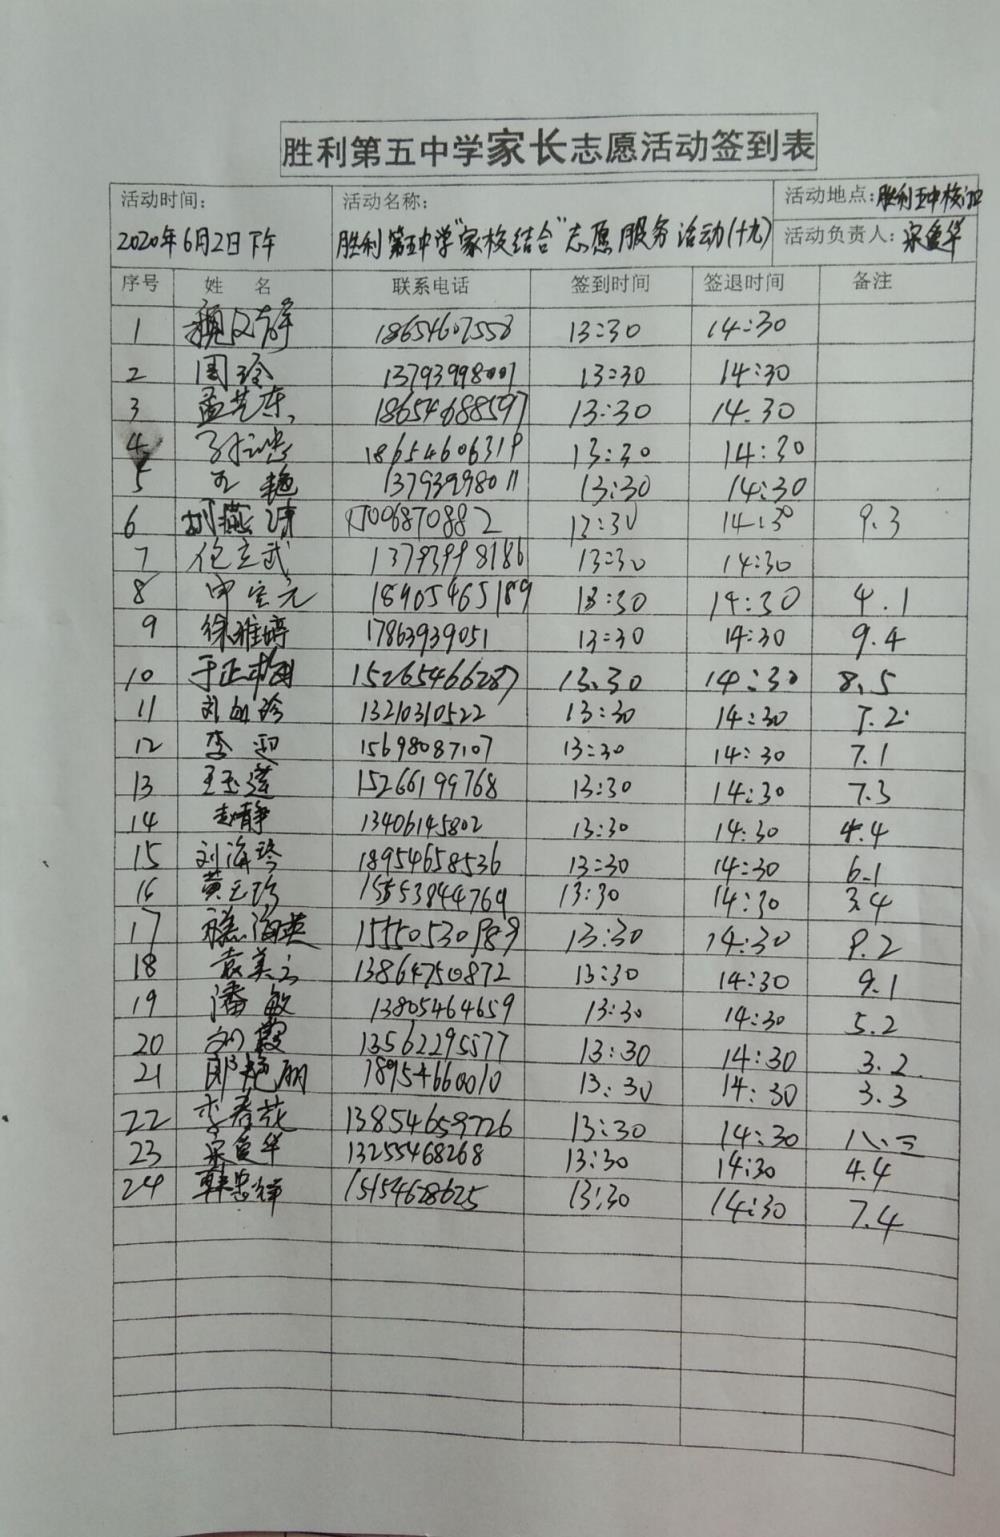 胜利第五中学家长志愿活动签到表
活动时间： 活动名称： 活动地点：胜利五中校门口
2020年6月2日下午 胜利第五中学"家校结合"志愿服务活动(十九) 活动负责人：宋鱼华
序号 姓 名 联系电话 签到时间 签退时间 备注
1 18654607558 13:30 14:30
2 周玲 13793998001 13:30 14:30
3 孟芝东 18654688597 13:30 14.30
4 18654606319 13:30 14:30
5 王艳 13793998011 13:30 14:30
6 13:30 14:30 9.3
7 任立武 13793998186 13:30 14:30
8 申宝元 18905465189 13:30 14:30 4.1
9 徐雅婷 17863939051 13:30 14:30 9.4
10 15265466287 13.30 14:30 8.5
11 刘血珍 13210310522 13:30 14:30 7.2
12 李迎 15698087107 13:30 14:30 7.1
13 王玉莲 15266199768 13:30 14:30 7.3
14 赵静 13406145802 13:30 14:30 4.4
15 刘海琴 18954658536 13:30 14:30 6.1
16 黄玉珍 15553844769 13:30 14:30 3.4
17 滕海英 15550530989 13:30 14:30 9.2
18 袁美云 13864750872 13:30 14:30 9.1
19 潘敏 13805464659 13:30 14:30 5.2
20 刘霞 13562295577 13:30 14:30 3.2
21 郎艳丽 18954660010 13:30 14:30 3.3
22 李春花 13854659726 13:30 14:30 八.三
23 宋鱼华 13255468268 13:30 14:30 4.4
24 韩忠锋 15154628625 13:30 14:30 7.4